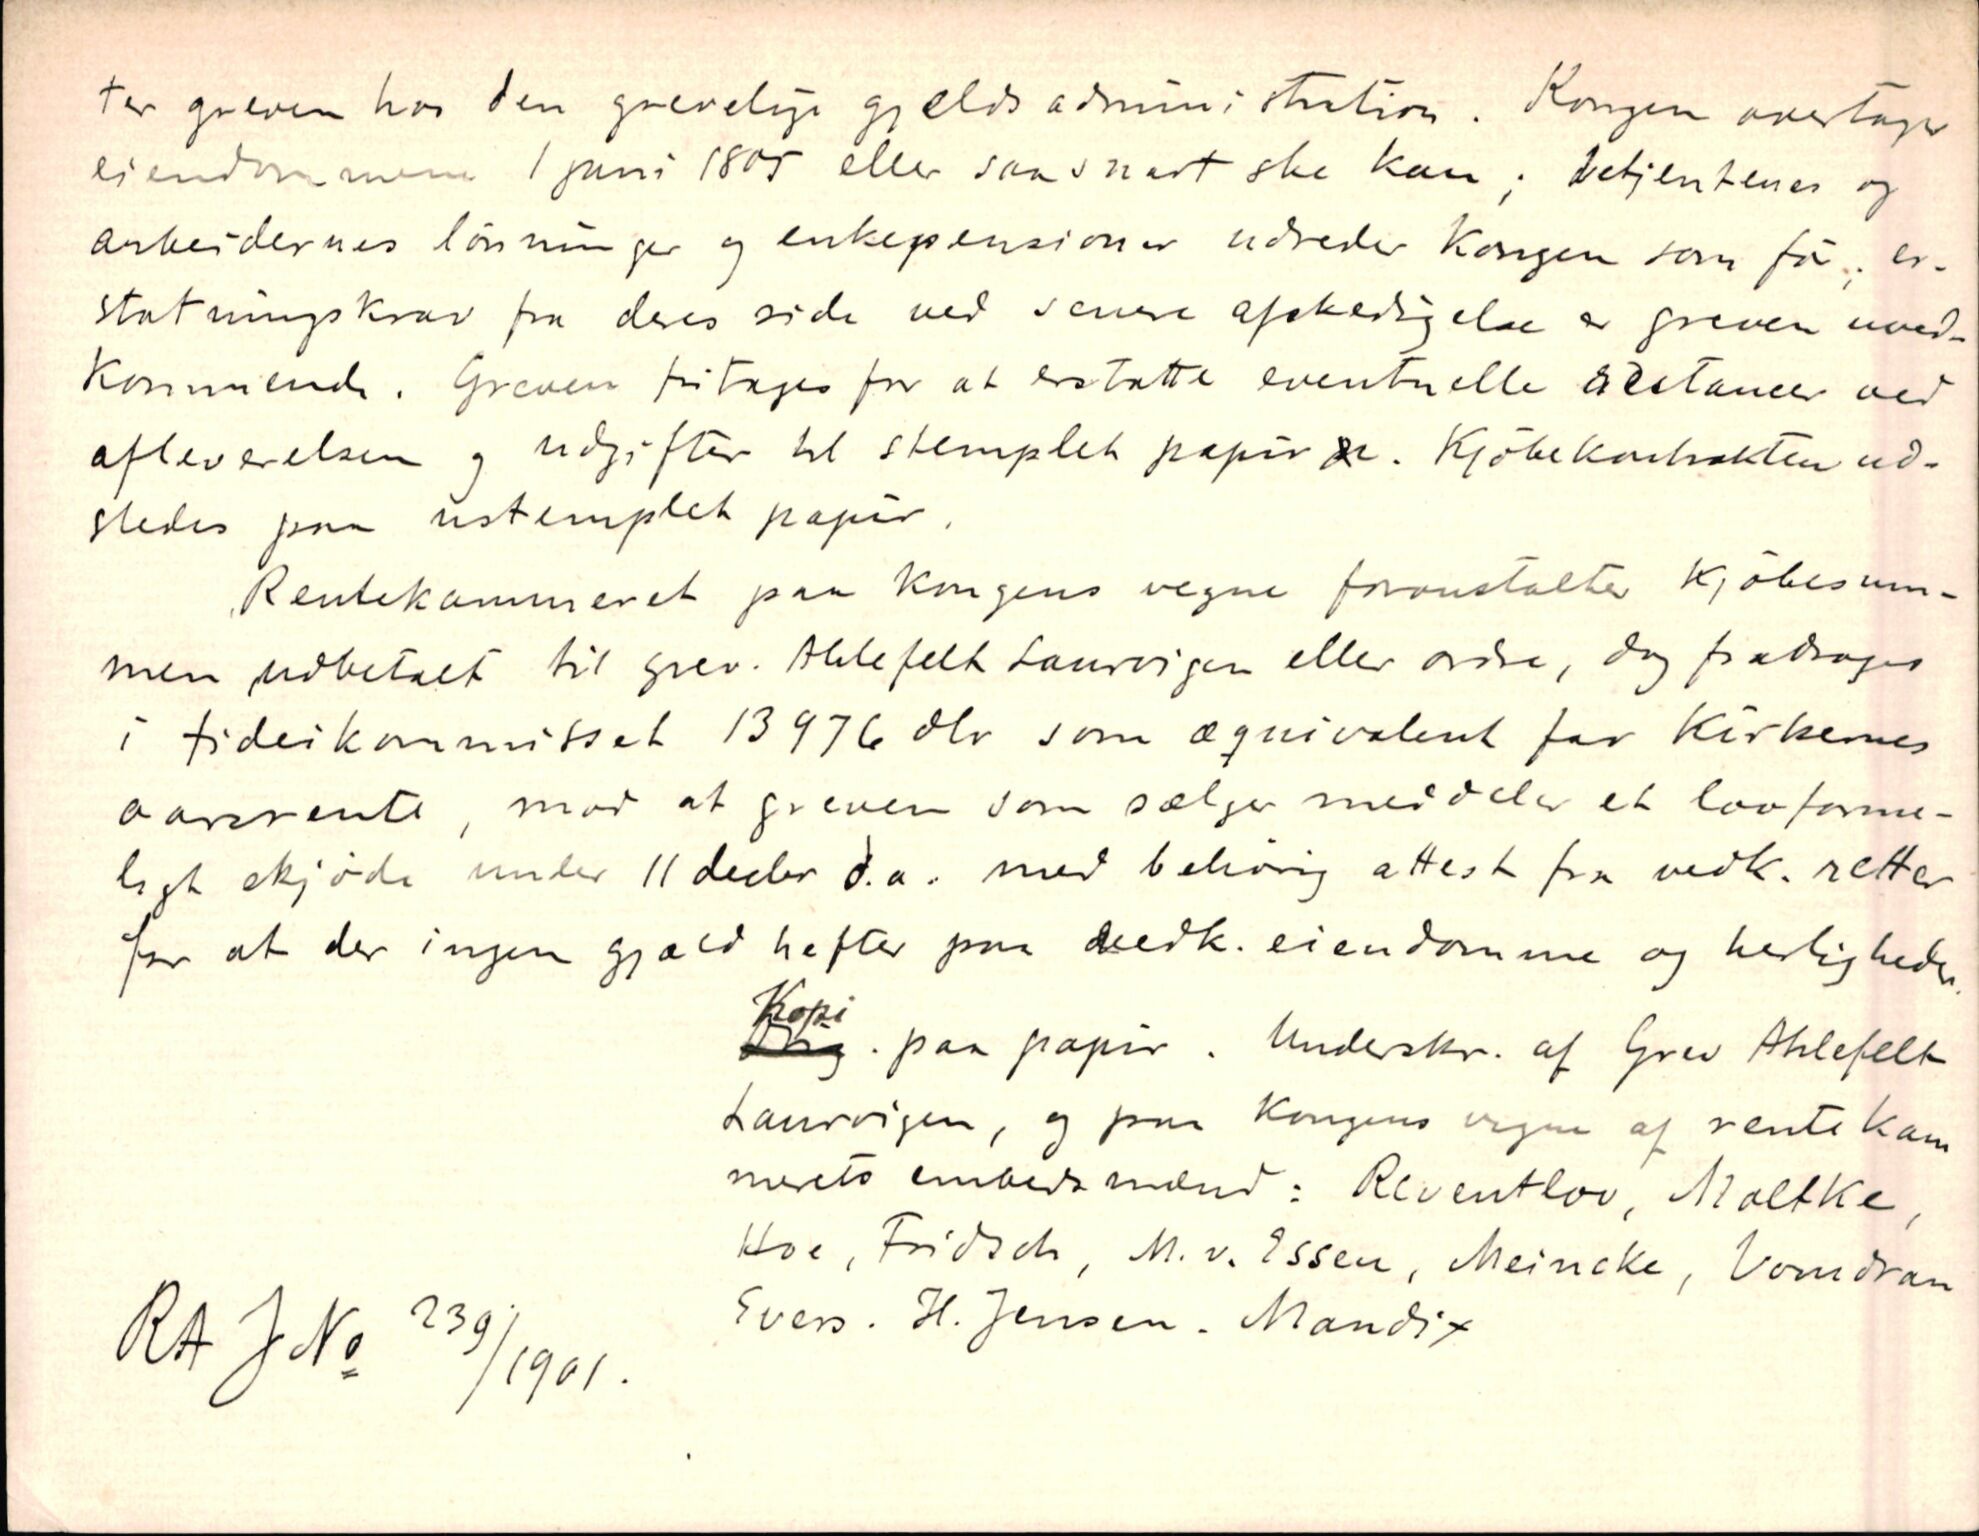 ter greven hos den grevelige gjeldsadministration. Kongen overtager
eiendommene 1 juni 1805 eller saasnart ske kan; betjentenes og
arbeidernes lönninger og enkepensioner udreder Kongen som för; er-
statningskrav fra deres side ved senere afskedigelse er greven uved-
kommende. Greven fritages for at erstatte eventuelle restancer ved
afleverelsen og udgifter til stemplet papir. Kjöbekontrakten ud-
stedes paa ustemplet papir.
Rentekammeret paa Kongens vegne foranstalter Kjöbesum-
men udbetalt til grev. Ahlefelt Laurvigen eller ordre, dog fradrages
i fideikommisset 13976 dlr som æquivalent for Kirkernes
aarsrente, mod at greven som sælger meddeler et lovforme-
ligt skjöde under 11 decbr d.a. med behörig attest fra vedk. retter
for at der ingen gjæld hefter paa vedk. eiendomme og herligheder.
Kopi
Orig. paa papir. Underskr. af Grev Ahlefelt
Laurvigen, og paa Kongens vegne af rentekam
merets embedsmænd: Reventlov, Moltke,
Hoe, Fridsch, M. v. Essen, Meincke, Vomdran
Evers. H. Jensen. Mandix
RA J No 239/1901.